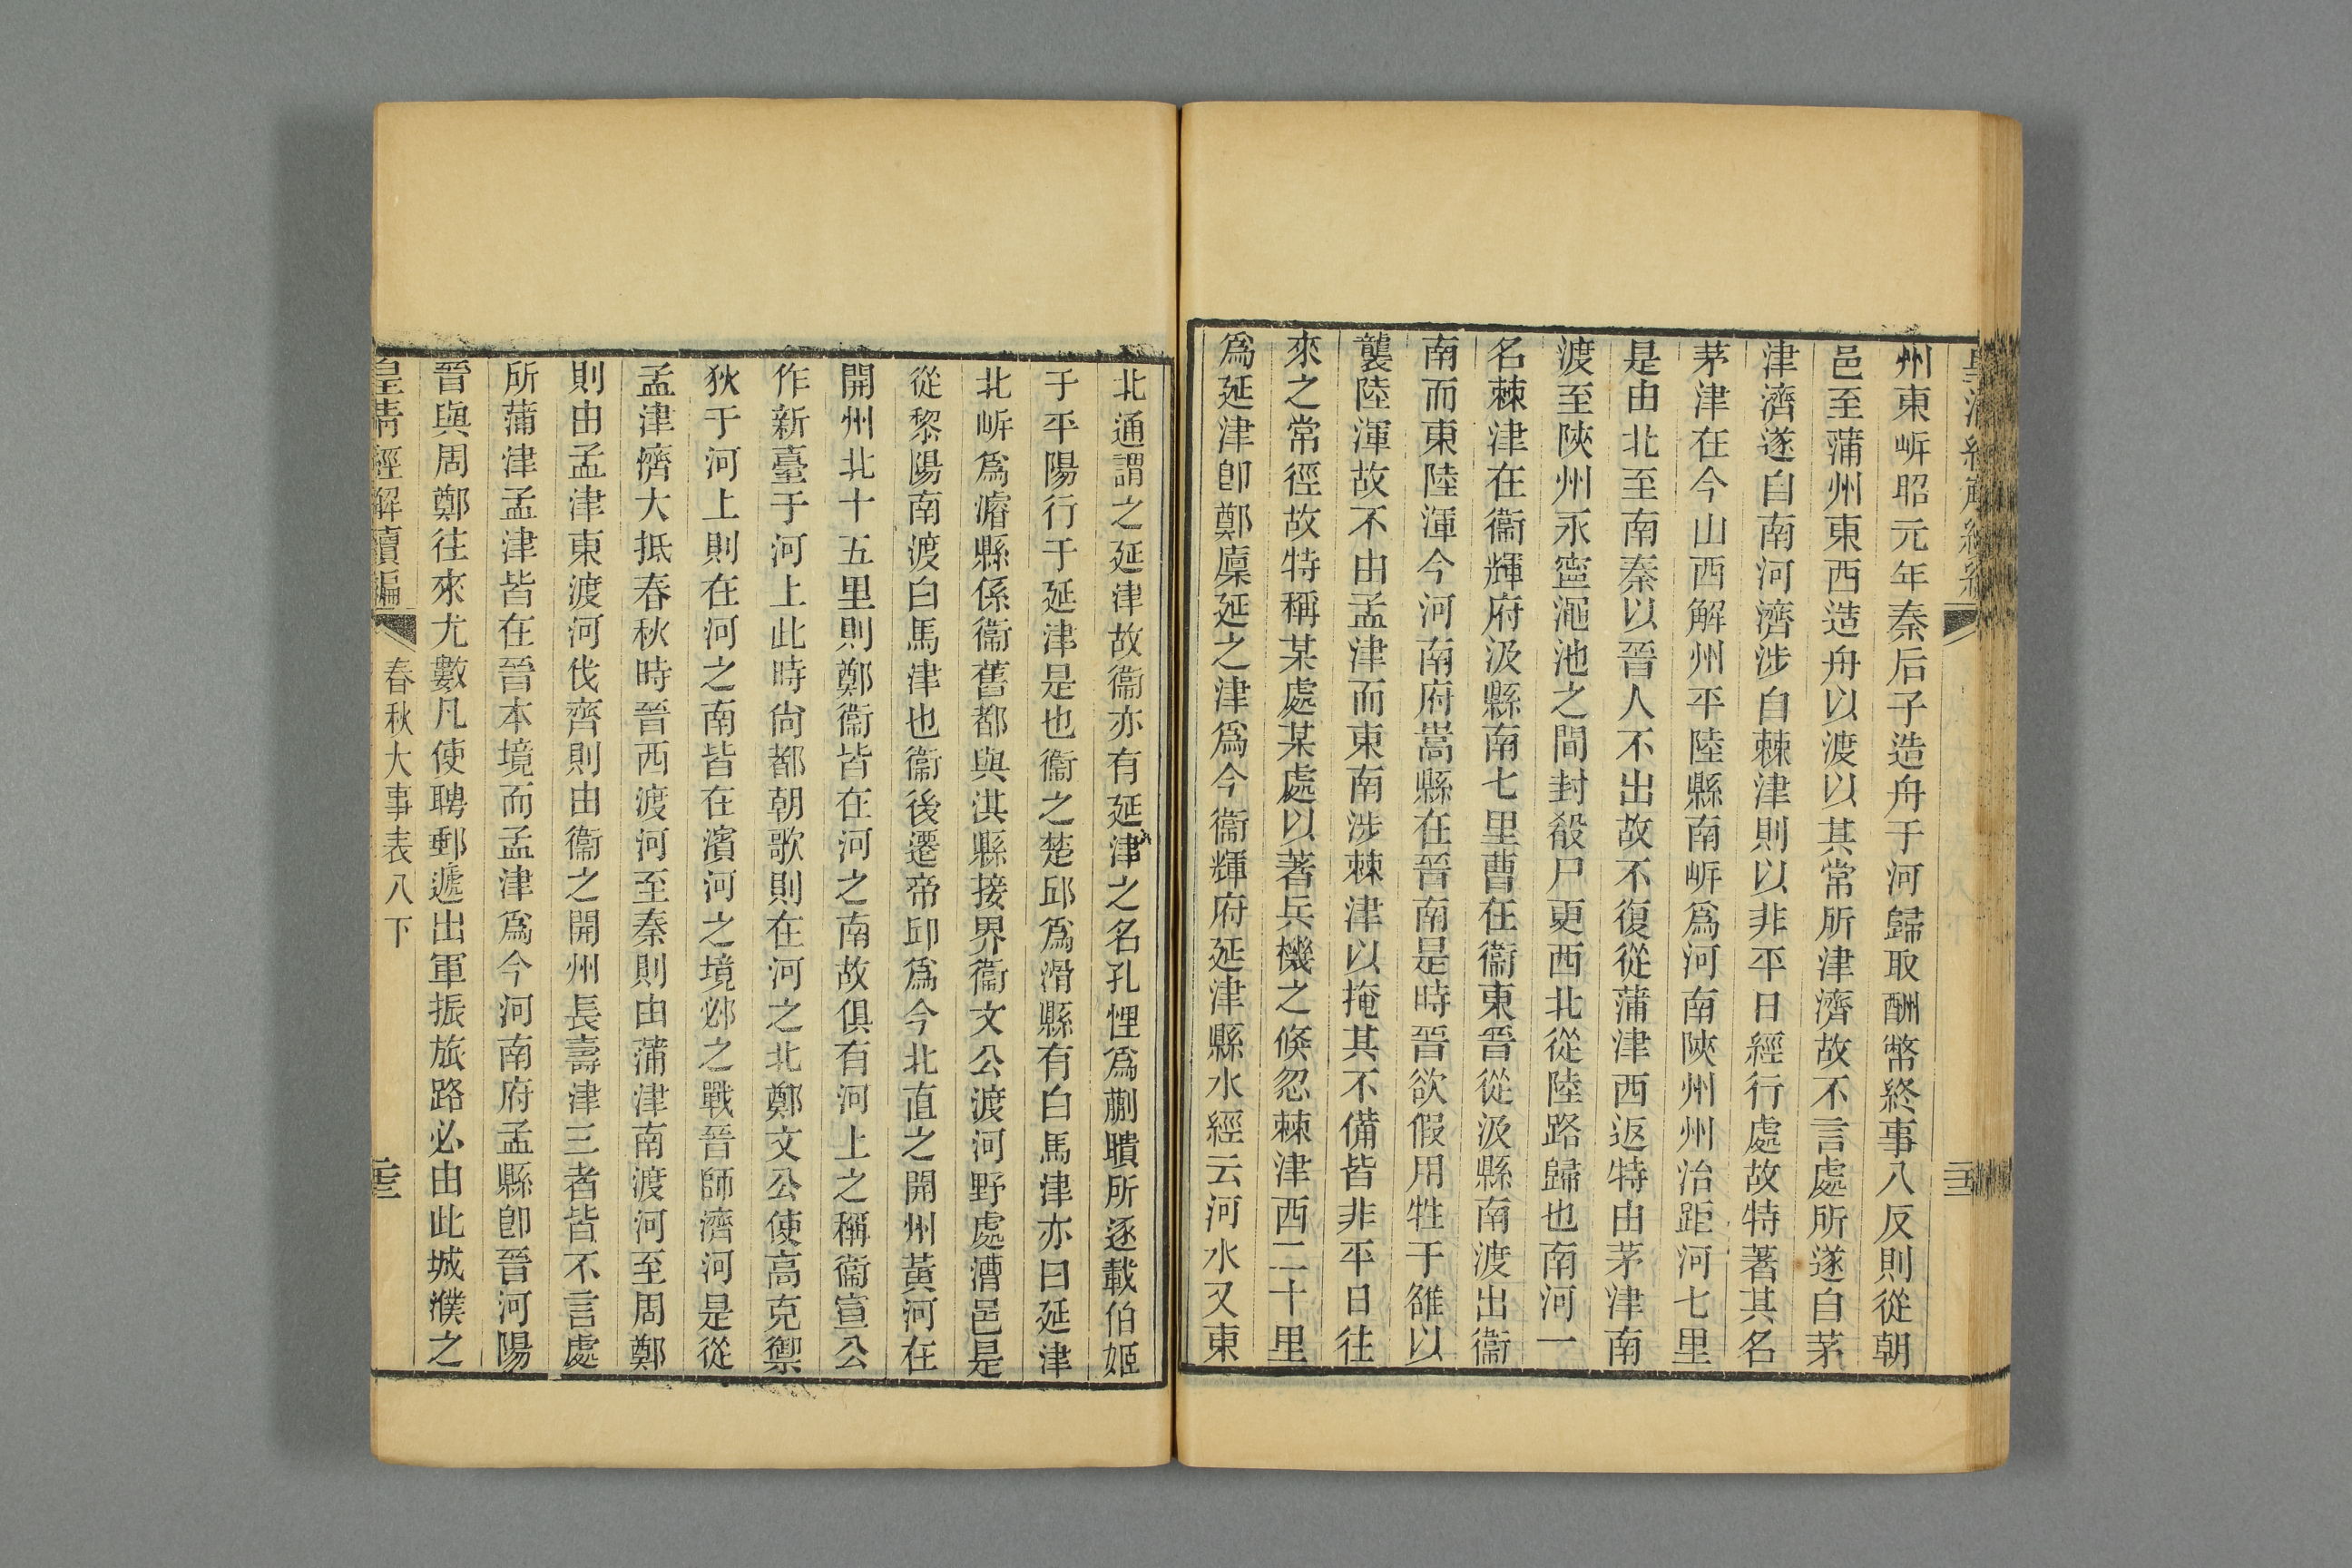 州東㟁昭元年秦后子造舟于河歸取酬幣終事八反則從朝
邑至蒲州東西造舟以渡以其常所津濟故不言處所遂自茅
津濟遂自南河濟涉自棘津則以非平日經行處故特著其名
茅津在今山西解州平陸縣南㟁爲河南陝州州治距河七里
是由北至南秦以晉人不出故不復從蒲津西返特由茅津南
渡至陝州永寧澠池之間封殽尸更西北從陸路歸也南河一
名棘津在衞輝府汲縣南七里曹在衞東晉從汲縣南渡出衞
南而東陸渾今河南府嵩縣在晉南是時晉欲假用牲于雒以
襲陸渾故不由孟津而東南涉棘津以掩其不備皆非平日往
來之常徑故特稱某處某處以著兵機之倏忽棘津西二十里
爲延津卽鄭廩延之津爲今衞輝府延津縣水經云河水又東
北通謂之延津故衞亦有延津之名孔悝爲蒯聵所逐載伯姬
于平陽行于延津是也衞之楚邱爲滑縣有白馬津亦曰延津
北㟁爲濬縣係衞舊都與淇縣接界衞文公渡河野處漕邑是
從黎陽南渡白馬津也衞後遷帝邱爲今北直之開州黃河在
開州北十五里則鄭衞皆在河之南故俱有河上之稱衞宣公
作新臺于河上此時尙都朝歌則在河之北鄭文公使高克禦
狄于河上則在河之南皆在濱河之境邲之戰晉師濟河是從
孟津濟大抵春秋時晉西渡河至秦則由蒲津南渡河至周鄭
則由孟津東渡河伐齊則由衞之開州長壽津三者皆不言處
所蒲津孟津皆在晉本境而孟津爲今河南府孟縣卽晉河陽
晉與周鄭往來尤數凡使聘郵遞出軍振旅路必由此城濮之
皇清經解續編
春秋大事表八下